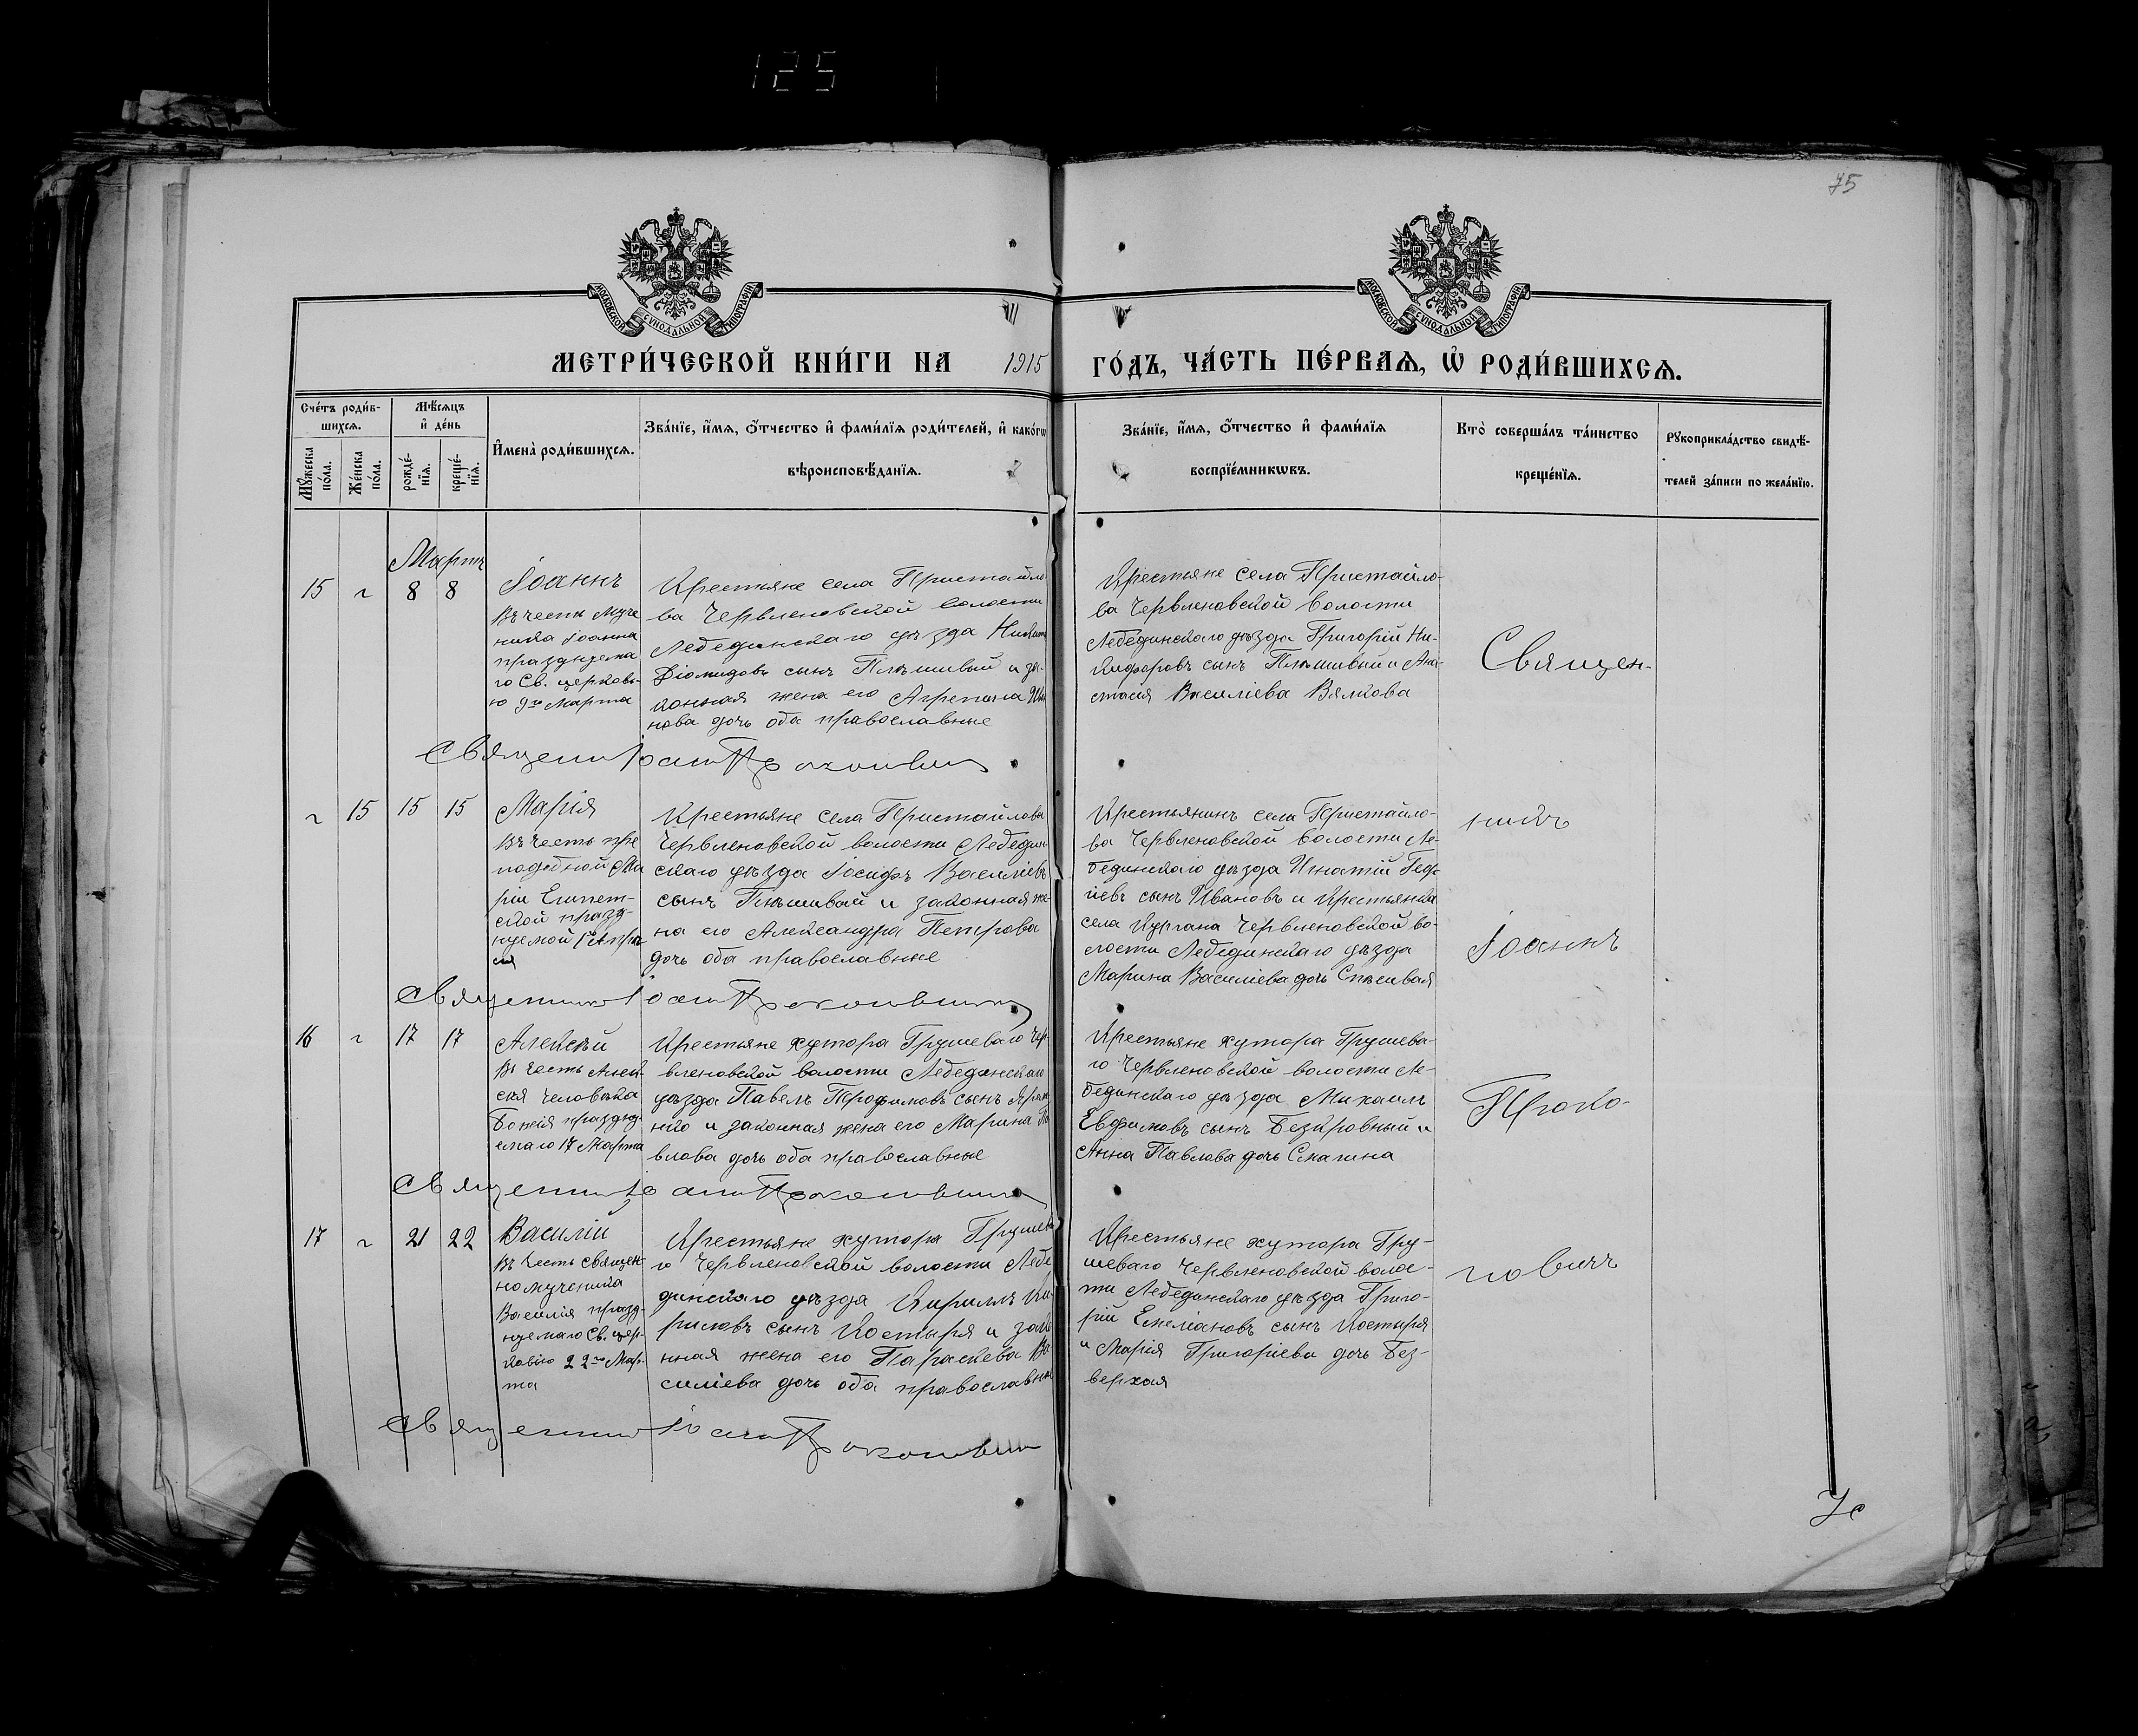 125
75
МОСКОВСКОЙ СѴНОДАЛЬНОЙ ТИПОГРАФІИ
МОСКОВСКОЙ СѴНОДАЛЬНОЙ ТИПОГРАФІИ
МЕТРИ́ЧЕСКОЙ КНИ́ГИ НА 1915 ГО́ДЪ, ЧА́СТЬ ПЕ́РВАѦ, Ѡ҆ РОДИ́ВШИХСѦ.
Сче́тъ роди́в-
шихсѧ.
Мꙋ́жеска
по́ла.
Же́нска
по́ла.
Мѣ́сѧцъ
и҆ де́нь
рожде́-
нїѧ.
креще́-
нїѧ.
И҆мена̀ роди́вшихсѧ.
Зва́нїе, и҆́мѧ, ѻ҆́тчество и҆ фами́лїѧ роди́телей, и҆ како́гѡ
вѣроисповѣ́данїѧ.
Зва́нїе, и҆́мѧ, ѻ҆́тчество и҆ фами́лїѧ
воспрїе́мникѡвъ.
Кто̀ соверша́лъ та́инство
креще́нїѧ.
Рꙋкоприкла́дство свидѣ́-
телей за́писи по жела́нїю.
Мартъ
15 8 8
Іоаннъ
Въ честь муче
ника Іоанна
празднуема
го Св. церковь-
ю 9го Марта
Крестьяне села Пристайло-
ва Червленовской волости
Лебединскаго уѣзда
Діомидовъ сынъ Плѣшивый и за-
конная жена его Агрепина Ива
нова дочь оба православные
Крестьяне села Пристайло-
ва Червленовской волости
Лебединскаго уѣзда Григорій Ни-
кифоровъ сынъ Плѣшивый и Ана-
стасія Василіева Вялкова
Священ-
Священникъ Іоаннъ Прокоповичъ
15 15 15
Марія
Въ честь пре
подобной Ма
ріи Египет-
ской празд-
нуемой 1го Апрѣ-
ля
Крестьяне села Пристайлова
Червленовской волости Лебедин-
скаго уѣзда Іосифъ Василіевъ
сынъ Плѣшивый и законная же-
на его Александра Петрова
дочь оба православные
Крестьянинъ села Пристайло-
ва Червленовской волости Ле-
бединскаго уѣзда Игнатій
сынъ Ивановъ и Крестьянка
села Кургана Червленовской во-
лости Лебединскаго уѣзда
Марина Василіева дочь
никъ
Іоаннъ
Священникъ Іоаннъ Прокоповичъ
16 17 17
Алексѣй
Въ честь Алек-
сія человѣка
Божія праздну-
емаго 17 Марта
Крестьяне хутора Грушеваго Чер-
вленовской волости Лебединскаго
уѣзда Павелъ Трофимовъ сынъ
и законная жена его Марина Па
влова дочь оба православные
Крестьяне хутора Грушева-
го Червленовской волости Ле-
бединскаго уѣзда Михаилъ
Евфимовъ сынъ Безкровный и
Анна Павлова дочь Смагина
Проко-
Священникъ Іоаннъ Прокоповичъ
17 21 22
Василій
Въ честь священ-
номученика
Василія празд-
нуемаго Св. цер-
ковію 22го Мар-
та
Крестьяне хутора Грушева
го Червленовской волости Лебе
динскаго уѣзда Кириллъ Ки-
риловъ сынъ Костыря и зако
нная жена его Параскева Ва
силіева дочь оба православные
Крестьяне хутора Гру-
шеваго Червленовской волос-
ти Лебединскаго уѣзда Григо-
рій Емеліановъ сынъ Костыря
и Марія Григоріева дочь Без-
верхая
повичъ
Священникъ Іоаннъ Прокоповичъ